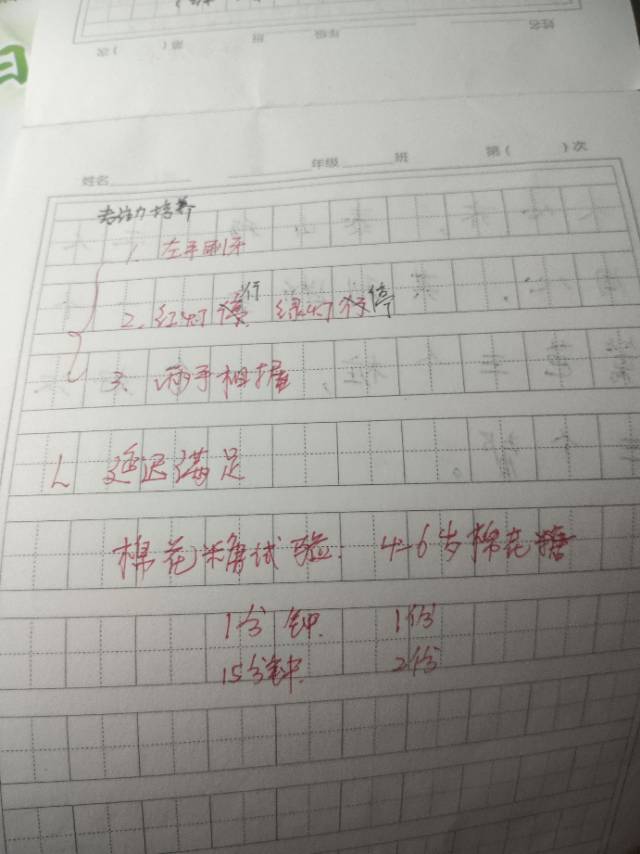 姓名 年级 班 第( )次
专注力培养
1. 左手刷牙
2. 红灯行 绿灯停
3. 两手相握
延迟满足
棉花糖试验: 4-6岁棉花糖
1分钟. 1份
15分钟. 2份